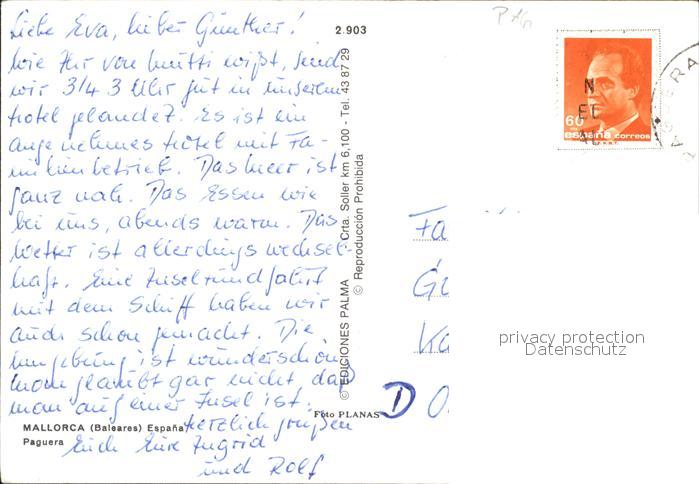 Liebe Eva, lieber Günther!
wie Ihr von Mutti wißt, sind
wir 3/4 3 Uhr gut in unserem
Hotel gelandet. Es ist ein
angenehmes Hotel mit Fa-
milienbetrieb. Das Meer ist
ganz nah. Das Essen wie
bei uns, abends warm. Das
Wetter ist allerdings wechsel-
haft. Eine Inselrundfahrt
mit dem Schiff haben wir
auch schon gemacht. Die
Umgebung ist wunderschön
man glaubt gar nicht daß
man auf einer Insel ist.
Herzlich grüßen
Euch Eure Ingrid
und Rolf
MALLORCA (Baleares) España
Paguera
2.903
© EDICIONES PALMA - Crta. Soller km 6,100 - Tel. 43 87 29
© Reproducción Prohibida
Foto PLANAS
60
españa correos
Fa
Gü
Ka
D O
privacy protection
Datenschutz